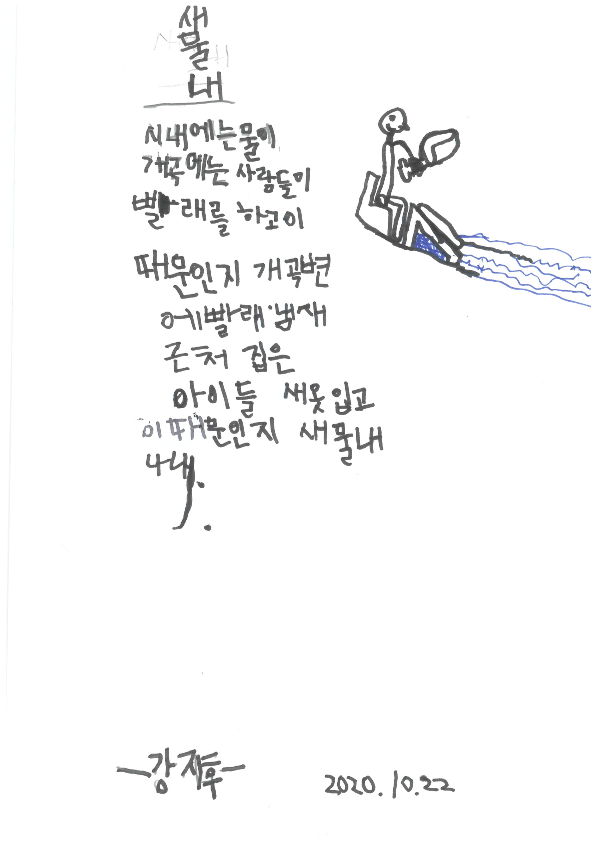 새
물
내
시내에는물이
개곡에는사람들이
빨래를 하고이
때문인지 개곡변
에빨래냄새
근처 집은
아이들 새옷입고
이때문인지 새물내
나내.
-강지후- 2020.10.22